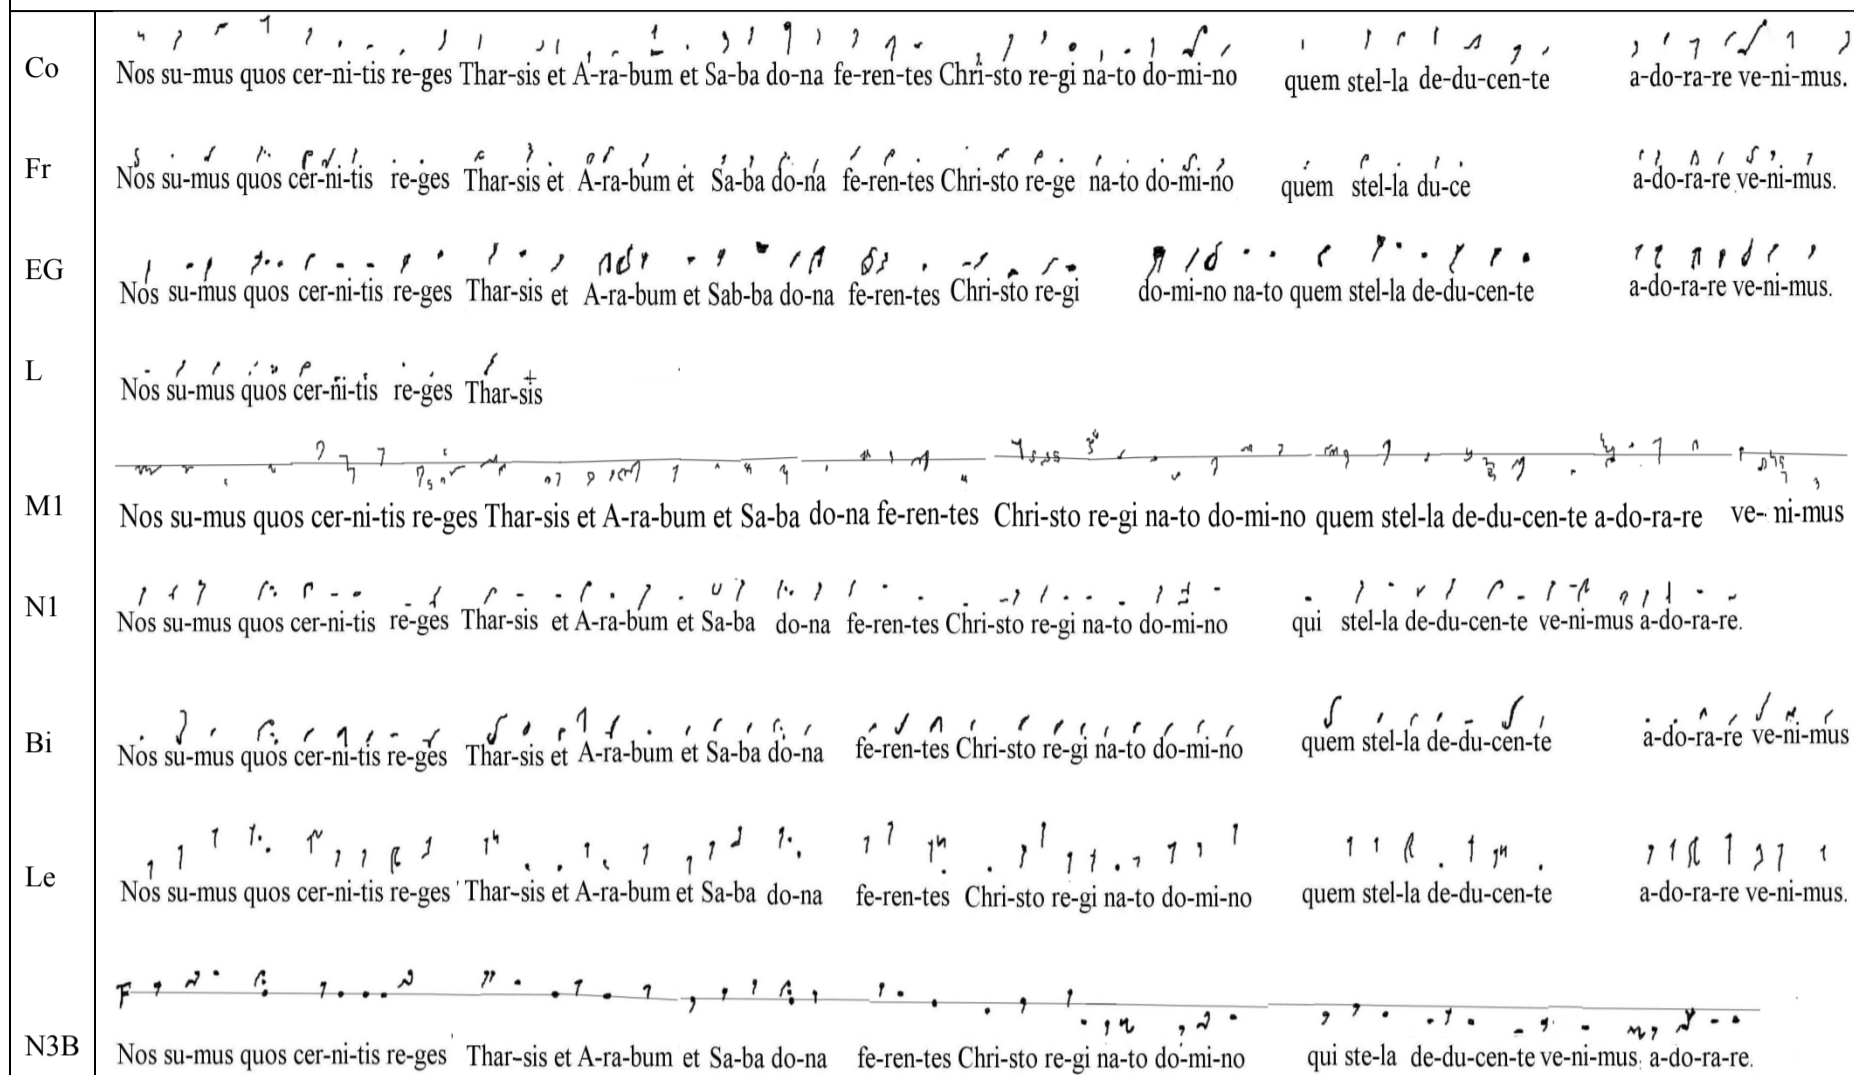 Co Nos su-mus quos cer-ni-tis re-ges Thar-sis et A-ra-bum et Sa-ba do-na fe-ren-tes Chri-sto re-gi na-to do-mi-no quem stel-la de-du-cen-te a-do-ra-re ve-ni-mus.
Fr Nos su-mus quos cer-ni-tis re-ges Thar-sis et A-ra-bum et Sa-ba do-na fe-ren-tes Chri-sto re-ge na-to do-mi-no quem stel-la du-ce a-do-ra-re ve-ni-mus.
EG Nos su-mus quos cer-ni-tis re-ges Thar-sis et A-ra-bum et Sab-ba do-na fe-ren-tes Chri-sto re-gi do-mi-no na-to quem stel-la de-du-cen-te a-do-ra-re ve-ni-mus.
L Nos su-mus quos cer-ni-tis re-ges Thar-sis
M1 Nos su-mus quos cer-ni-tis re-ges Thar-sis et A-ra-bum et Sa-ba do-na fe-ren-tes Chri-sto re-gi na-to do-mi-no quem stel-la de-du-cen-te a-do-ra-re ve-ni-mus
N1 Nos su-mus quos cer-ni-tis re-ges Thar-sis et A-ra-bum et Sa-ba do-na fe-ren-tes Chri-sto re-gi na-to do-mi-no qui stel-la de-du-cen-te ve-ni-mus a-do-ra-re.
Bi Nos su-mus quos cer-ni-tis re-ges Thar-sis et A-ra-bum et Sa-ba do-na fe-ren-tes Chri-sto re-gi na-to do-mi-no quem stel-la de-du-cen-te a-do-ra-re ve-ni-mus
Le Nos su-mus quos cer-ni-tis re-ges Thar-sis et A-ra-bum et Sa-ba do-na fe-ren-tes Chri-sto re-gi na-to do-mi-no quem stel-la de-du-cen-te a-do-ra-re ve-ni-mus.
N3B Nos su-mus quos cer-ni-tis re-ges Thar-sis et A-ra-bum et Sa-ba do-na fe-ren-tes Chri-sto re-gi na-to do-mi-no qui ste-la de-du-cen-te ve-ni-mus a-do-ra-re.